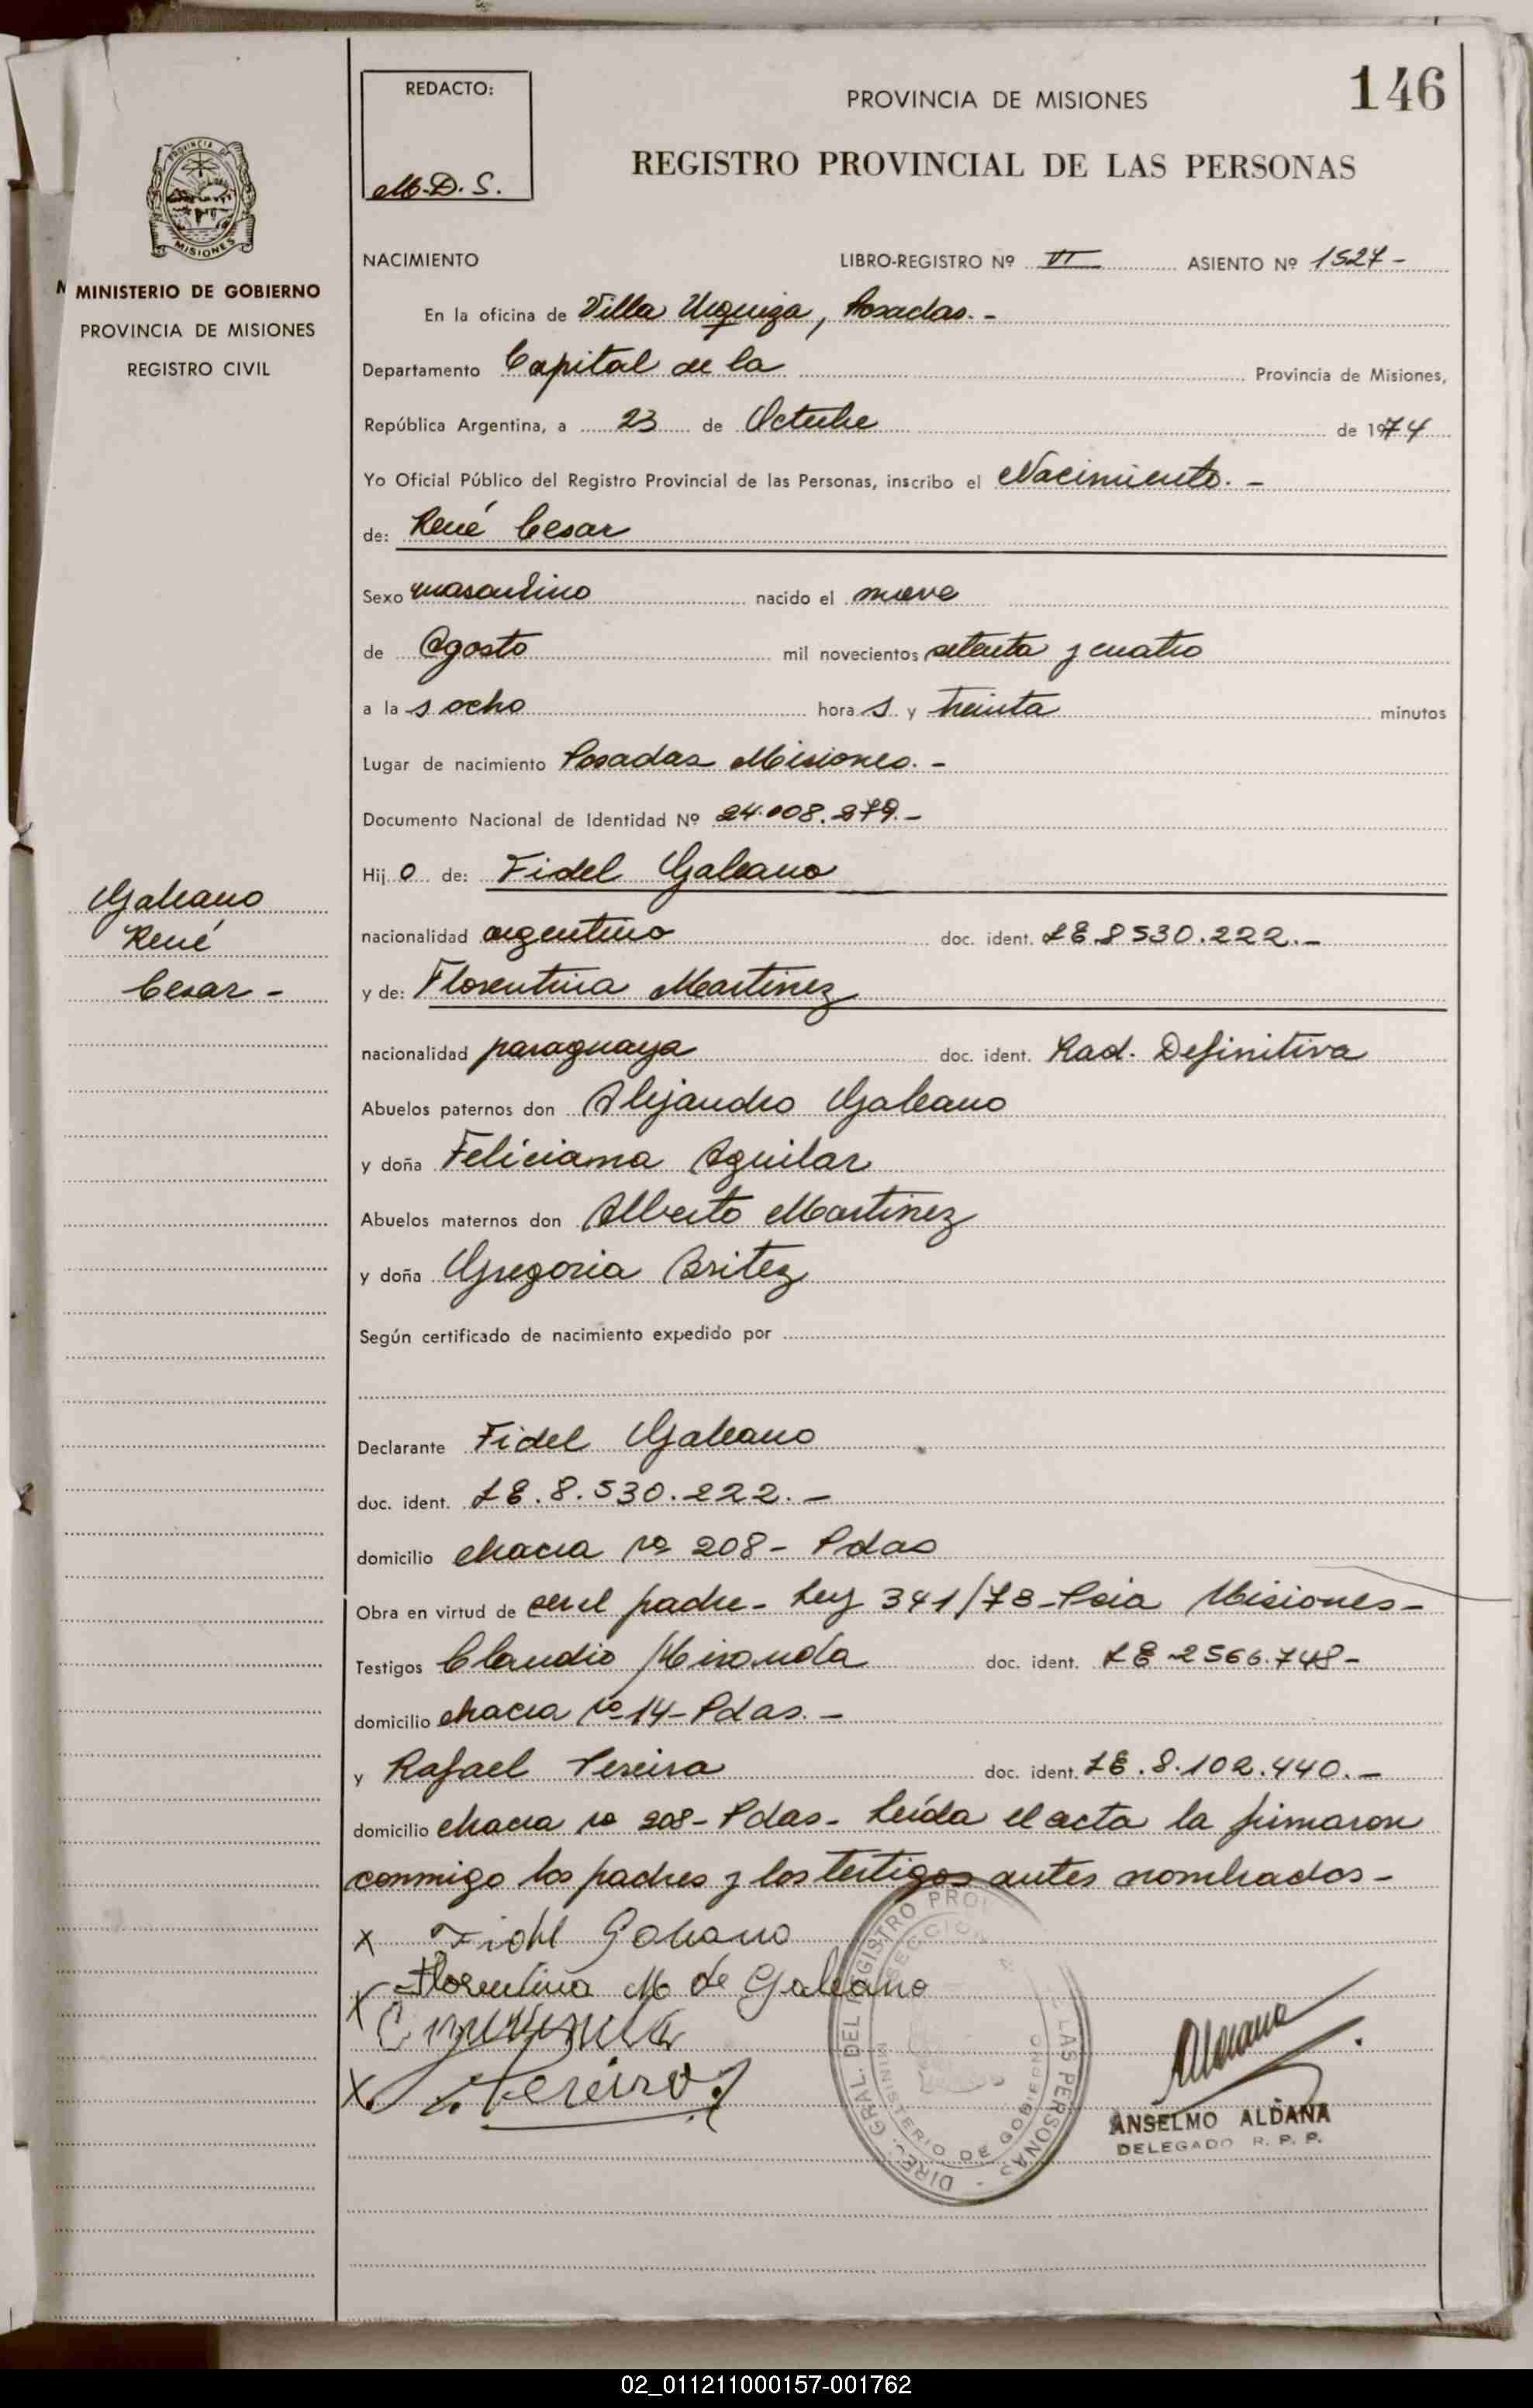 146
REDACTO:
M.D.S.
PROVINCIA DE MISIONES
REGISTRO PROVINCIAL DE LAS PERSONAS
PROVINCIA DE
MISIONES
MINISTERIO DE GOBIERNO
PROVINCIA DE MISIONES
REGISTRO CIVIL
NACIMIENTO LIBRO-REGISTRO Nº VI ASIENTO Nº 1527-
En la oficina de Villa Urquiza, Posadas.-
Departamento Capital de la Provincia de Misiones,
República Argentina, a 23 de Octubre de 1974
Yo Oficial Público del Registro Provincial de las Personas, inscribo el Nacimiento.-
de: René Cesar
Sexo masculino nacido el nueve
de Agosto mil novecientos setenta y cuatro
a las ocho horas y treinta minutos
Lugar de nacimiento Posadas Misiones.-
Documento Nacional de Identidad Nº 24.008.279.-
Hijo de: Fidel Galeano
Galeano
René
Cesar-
nacionalidad argentino doc. ident. LE.8530.222.-
y de: Florentina Martinez
nacionalidad paraguaya doc. ident. Rad. Definitiva
Abuelos paternos don Alejandro Galeano
y doña Feliciana Aguilar
Abuelos maternos don Alberto Martinez
y doña Gregoria Britez
Según certificado de nacimiento expedido por
Declarante Fidel Galeano
doc. ident. LE.8.530.222.-
domicilio chacra nº 208- Pdas
Obra en virtud de ser el padre- Ley 341/73-Pcia Misiones-
Testigos Claudio Miranda doc. ident. LE 2566.748-
domicilio chacra nº 14-Pdas.-
y Rafael Pereira doc. ident. LE.8.102.440.-
domicilio chacra nº 208-Pdas- Leída el acta la firmaron
conmigo los padres y los testigos antes nombrados-
x Fidel Galeano
x Florentina M de Galeano
x Pereira
DIREC. GRAL. DEL REGISTRO PROV LAS PERSONAS
MINISTERIO DE GOBIERNO
Aldana
ANSELMO ALDANA
DELEGADO R. P. P.
02_011211000157-001762